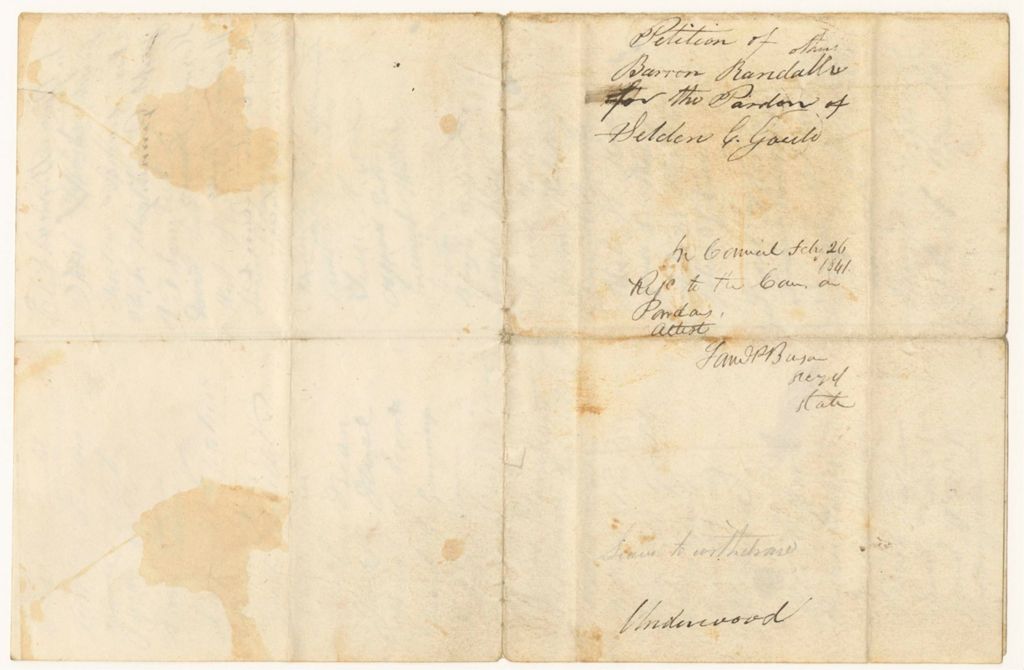 Petition of
Barron Randall & others
for the Pardon of
Selden C. Gould
In Council Feb 26
1841.
Ref. to the Com. on
Pardons.
Attest
Sec'y of
State
Leave to withdraw
Underwood